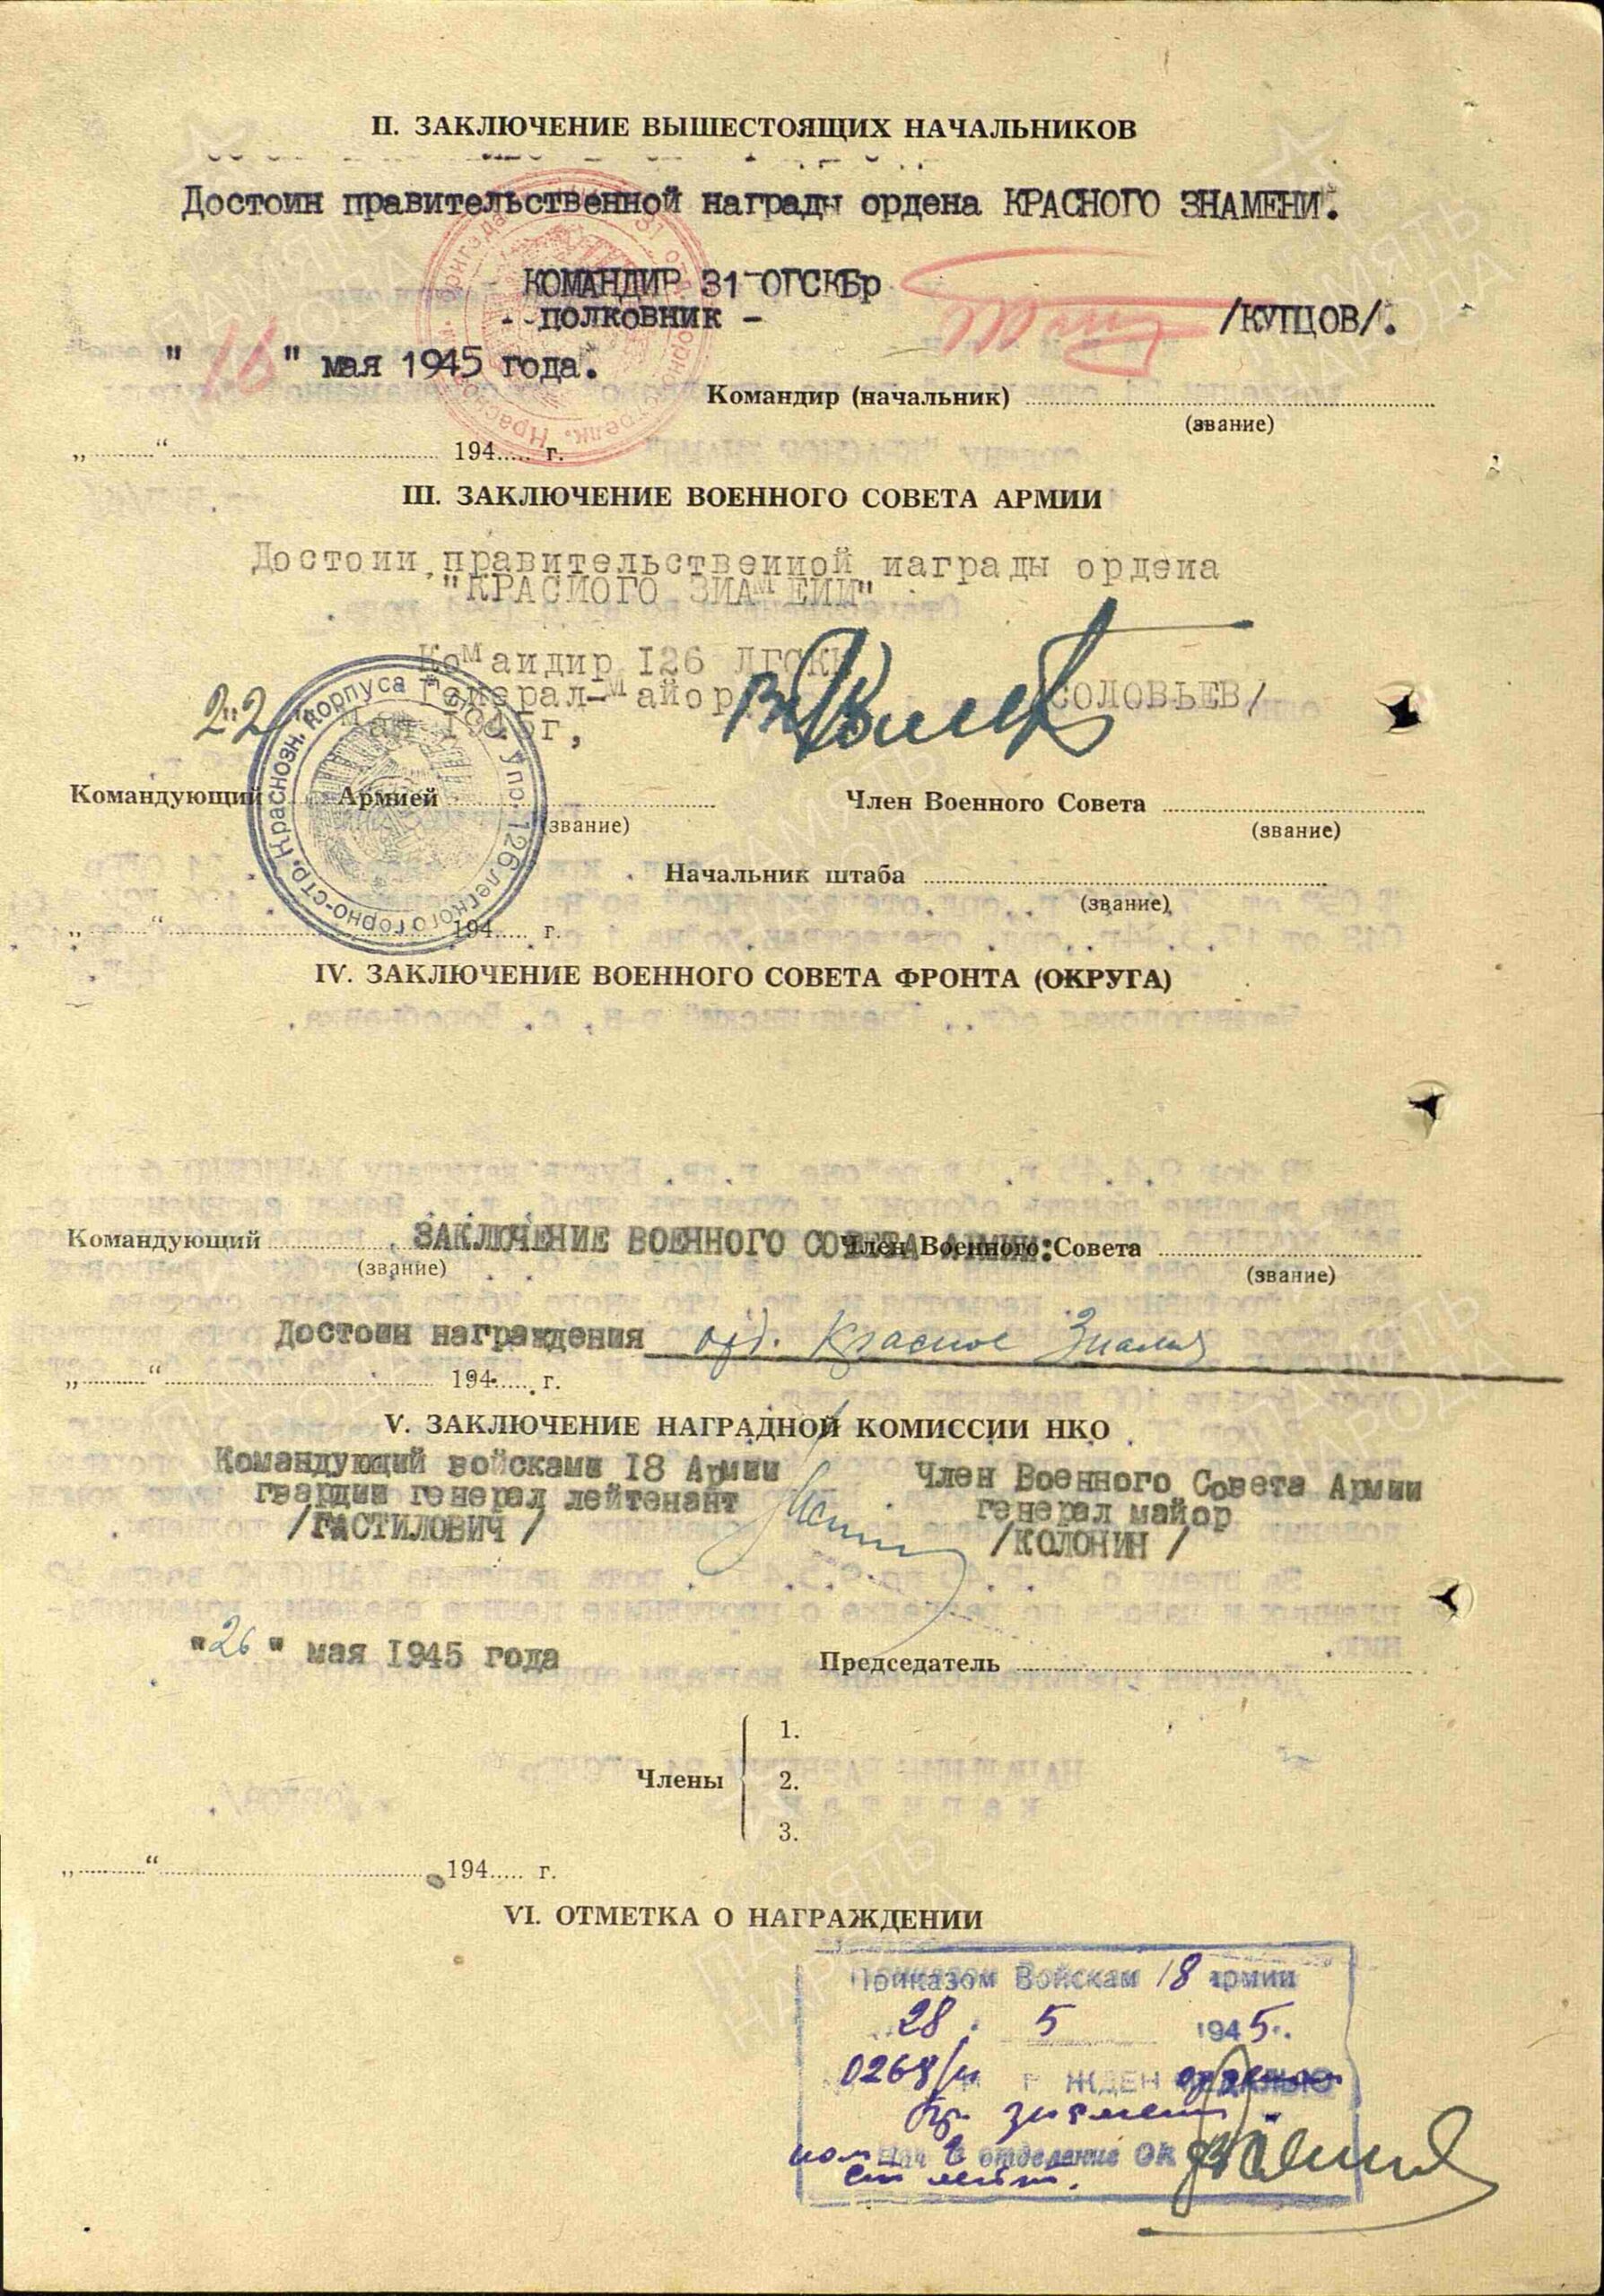 II. ЗАКЛЮЧЕНИЕ ВЫШЕСТОЯЩИХ НАЧАЛЬНИКОВ
Достоин правительственной награды ордена КРАСНОГО ЗНАМЕНИ.
КОМАНДИР 31 ОГСКБр
- ПОЛКОВНИК -
/КУПЦОВ/.
" 16 " мая 1945 года.
Командир (начальник)
(звание)
„ “ 194 г.
III. ЗАКЛЮЧЕНИЕ ВОЕННОГО СОВЕТА АРМИИ
Достоин правительственной награды ордена
"КРАСНОГО ЗНАМЕНИ"
Командир 126 ЛГСКК
Генерал-майор
СОЛОВЬЕВ/
"22" мая 1945г,
Упр. 126 легкого горно-стр. Краснозн. корпуса
Командующий Армией
(звание)
Член Военного Совета
(звание)
Начальник штаба
(звание)
„ “ 194 г.
IV. ЗАКЛЮЧЕНИЕ ВОЕННОГО СОВЕТА ФРОНТА (ОКРУГА)
Командующий
(звание)
ЗАКЛЮЧЕНИЕ ВОЕННОГО СОВЕТА АРМИИ:
Член Военного Совета
(звание)
Достоин награждения орд. Красное Знамя
„ “ 194 г.
V. ЗАКЛЮЧЕНИЕ НАГРАДНОЙ КОМИССИИ НКО
Командующий войсками 18 Армии
гвардии генерал лейтенант
/ГАСТИЛОВИЧ /
Член Военного Совета Армии
генерал майор
/КОЛОНИН /
"26" мая 1945 года
Председатель
Члены
1.
2.
3.
„ “ 194 г.
VI. ОТМЕТКА О НАГРАЖДЕНИИ
Приказом Войскам 18 армии
28. 5 1945.
0268/н ЖДЕН орденом
Кр. знамени
пом Нач 2 отделение ОК
ст лейт.
ПАМЯТЬ
НАРОДА